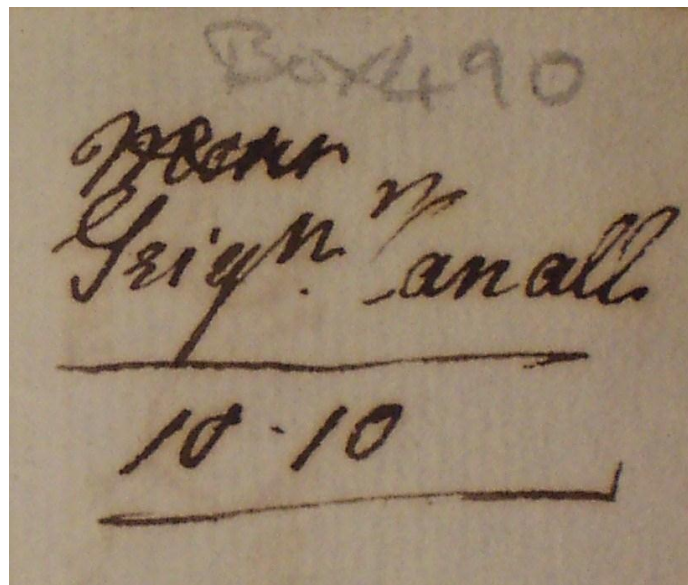 Box 490
Seign. Canall
10-10